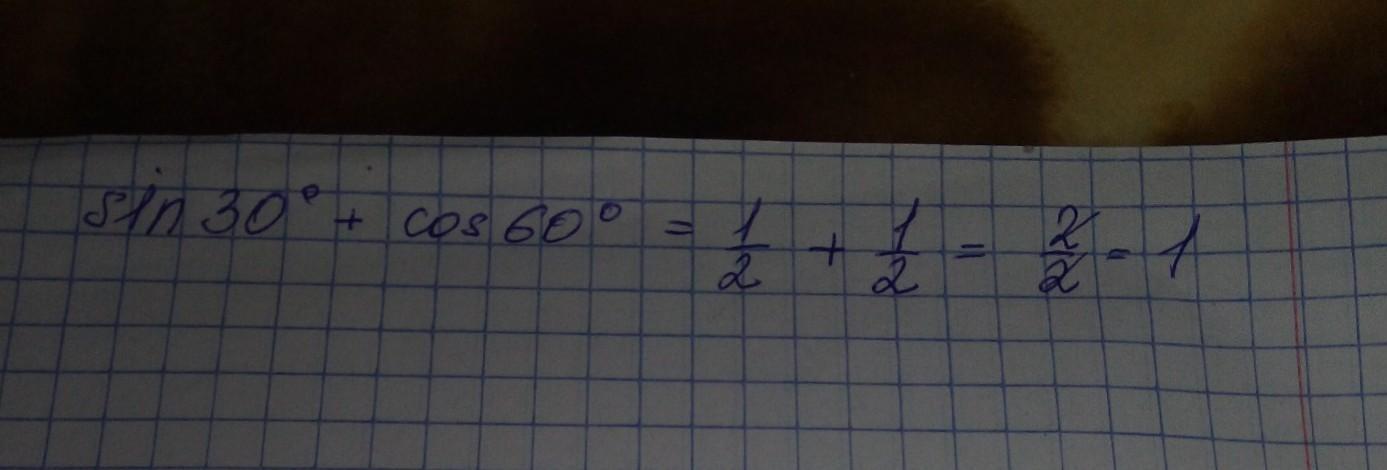 sin 30° + cos 60° = 1/2 + 1/2 = 2/2 = 1